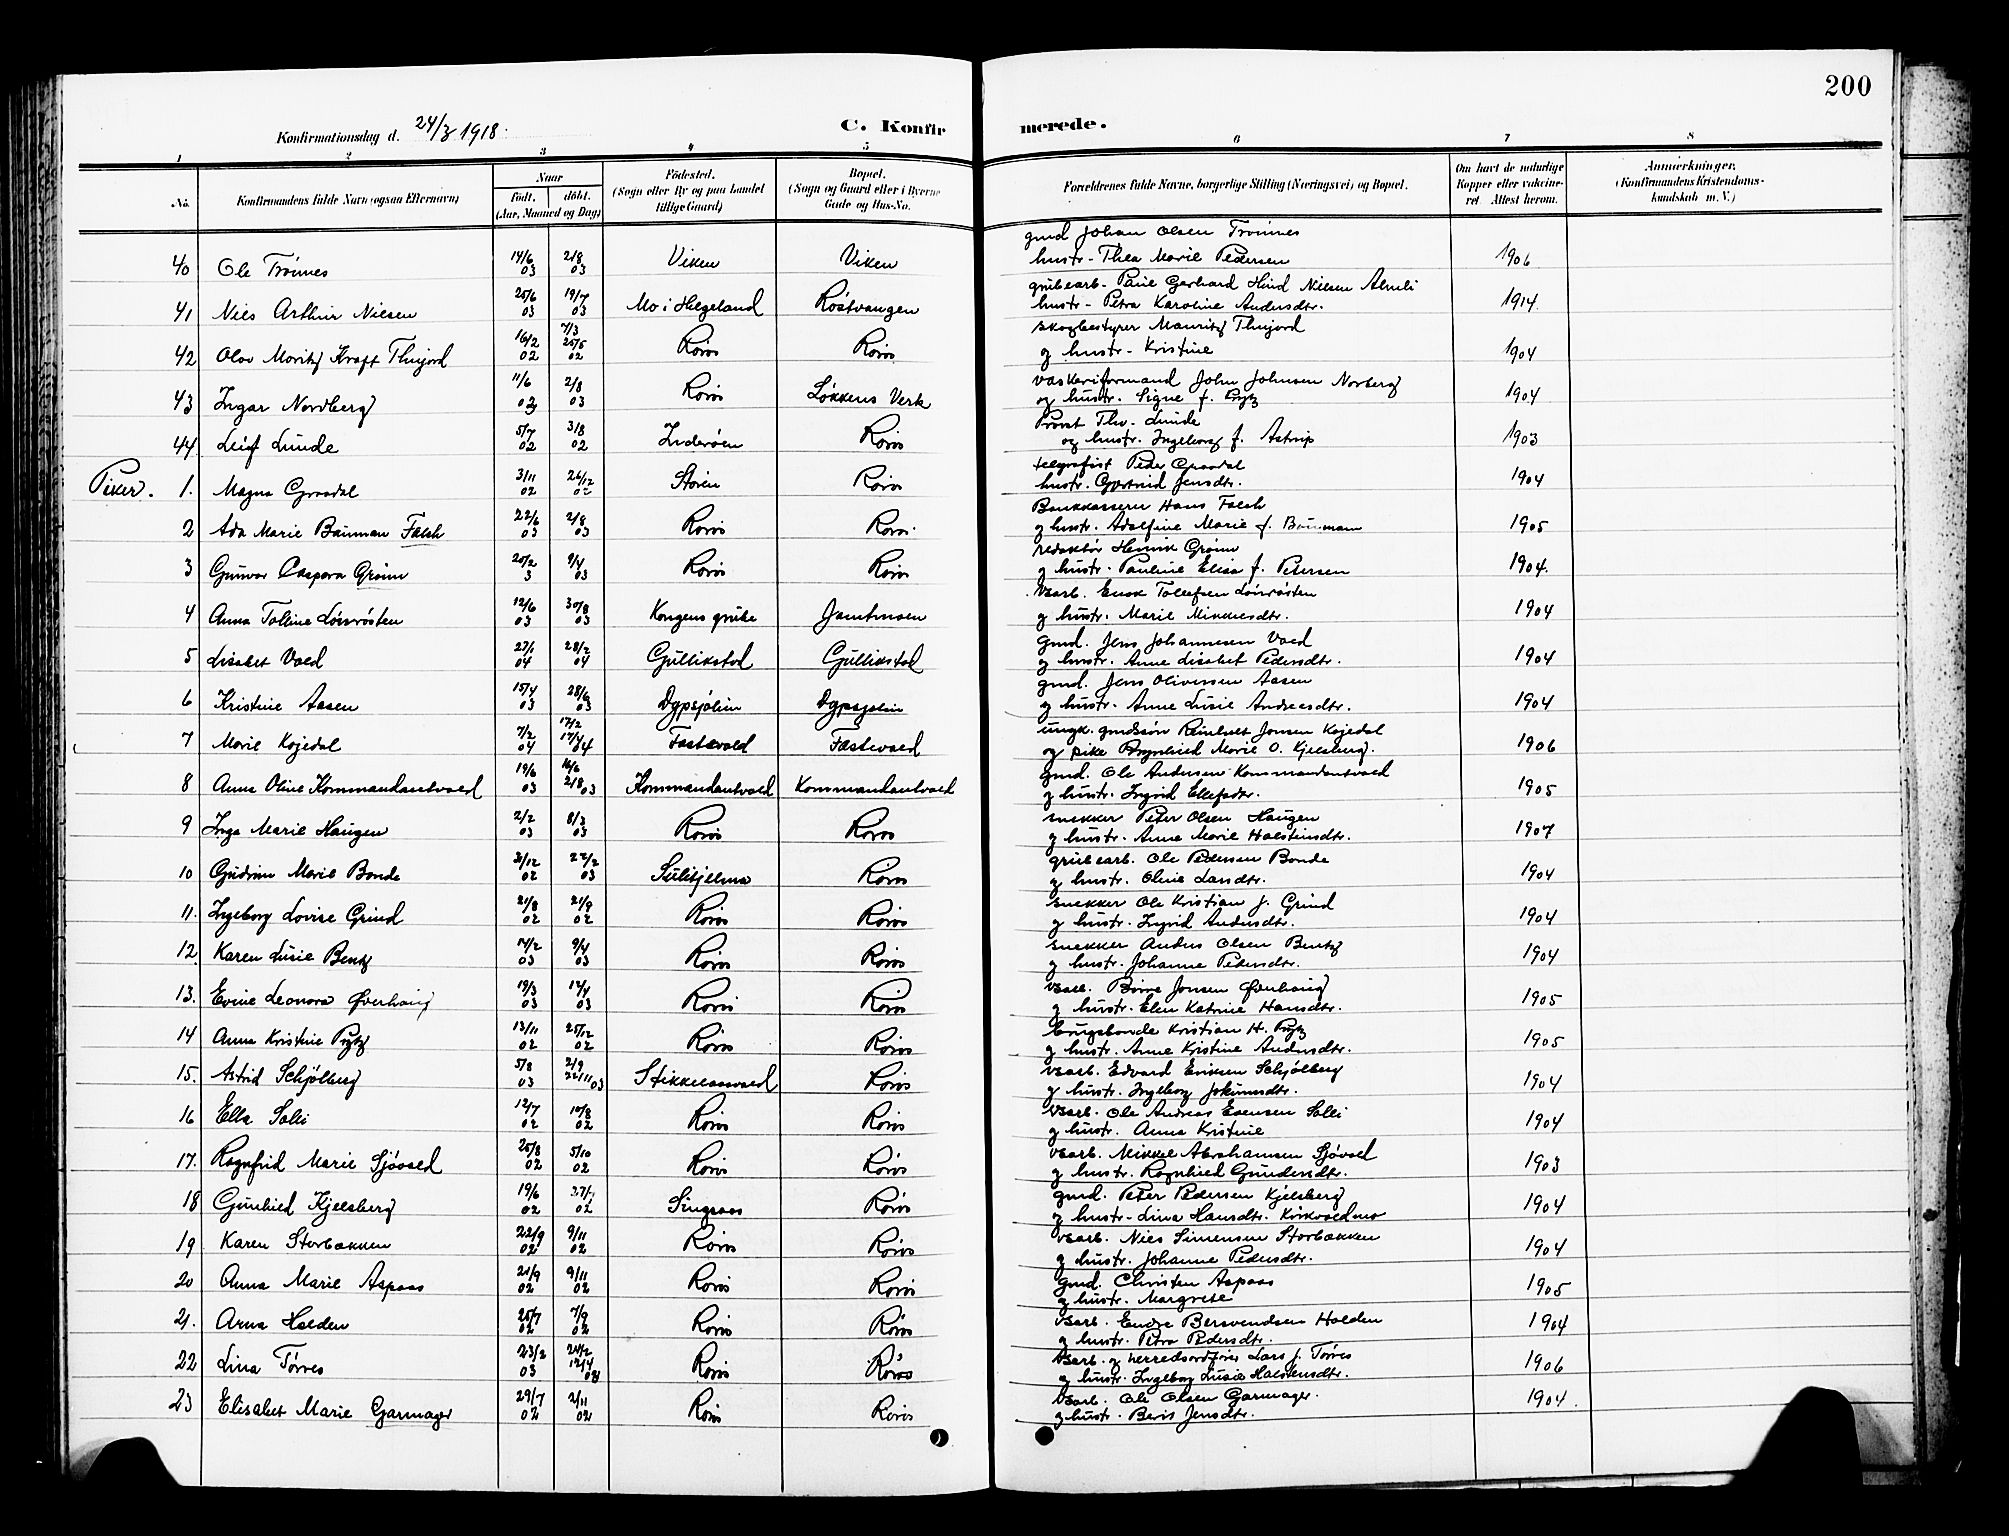 200
Konfirmationsdag d. 24/3 1918.
C. Konfirmerede.
1 2 3 4 5 6 7 8
No. Konfirmandens fulde Navn (ogsaa Efternavn) Naar født. døbt. (Aar, Maaned og Dag) Fødested. (Sogn eller By og paa Landet tillige Gaard) Bopæl. (Sogn og Gaard eller i Byerne Gade og Hus-No. Forældrenes fulde Navne, borgerlige Stilling (Næringsvei) og Bopæl. Om havt de naturlige Kopper eller vakcineret. Attest herom. Anmærkninger. (Konfirmandens Kristendomskundskab m. V.)
40 Ole Trønnes 14/6 03 2/8 03 Viken Viken gmd Johan Olsen Trønnes
hustr- Thea Marie Pedersen 1906
41 Nils Arthur Nielsen 25/6 03 19/7 03 Mo i Helgeland Røstvangen grubearb- Gerhard Hind Nielsen
hustr- Petra Karoline Andersdtr. 1914
42 Olov Moritz Kraft Thujord 16/2 02 7/3 25/5 02 Røros Røros skogbestyrer Mauritz Thujord
og hustr- Kristine 1904
43 Ingar Nordberg 11/6 03 2/8 03 Røros Løkkens Verk vaskeriformand John Johnsen Norberg
og hustr. Signe f. Prytz 1904
44. Leif Lunde 5/7 02 3/8 02 Inderøen Røros Provst Thv. Lunde
og hustr. Ingeborg f. Astrup 1903
Piker. 1. Magna Graadal 3/11 02 26/12 02 Støren Røros telegrafist Peder Graadal
hustr. Gjertrud Jensdtr. 1904
2 Ada Marie Bauman Falch 22/6 03 2/8 03 Røros Røros Bankkasserer Hans Falch
og hustr. Adolfine Marie f. Bauman 1905
3 Gunvor Caspara Grønn 20/2 3 9/4 03 Røros Røros redaktør Henrik Grønn
og hustr. Pauline Elisa f. Petersen 1904.
4 Anna Talline Lønrøsten 12/6 03 30/8 03 Kongens grube Jamtmoen Varb. Enok Tollefsen Lønrøsten
og hustr. Marie Mikkelsdtr. 1904
5 Lisabet Vold 27/1 04 28/2 04 Gullikstad Gullikstad gmd. Jens Johannesen Vold
og hustr. Anne Lisabet Pedersdtr. 1904
6 Kristine Aasen 15/4 03 28/6 03 Dypsjølien Dypsjølien gmd. Jens Oliversen Aasen
og hustr. Anne Lusie Andreasdtr. 1904
7 Marie Kojedal 7/2 04 17/2 17/4 04 Fastevold Fastevold ungk. gmdssøn Reinholt Jonsen Kojedal
og pike Brynhild Marie O. Kjelsberg. 1906
8 Anna Oline Kommandantvold 19/6 03 16/6 2/8 03 Kommandantvold Kommandantvold gmd. Ole Andersen Kommandantvold
og hustr. Ingrid Ellefsdtr. 1905
9 Inga Marie Haugen 2/2 03 8/3 03 Røros Røros snekker Peter Olsen Haugen
og hustr. Anne Marie Halstensdtr. 1907
10 Gudrun Marie Bonde 3/12 02 22/2 03 Sulitjelma Røros grubearb. Ole Pedersen Bonde
og hustr. Oline Larsdtr. 1904
11. Ingeborg Lovise Grind 21/8 02 21/9 02 Røros Røros snekker Ole Kristian J. Grind
og hustr. Ingrid Andersdtr. 1904
12. Karen Lusie Bentz 14/2 03 9/4 03 Røros Røros snekker Anders Olsen Bentz
og hustr. Johanne Pedersdtr. 1904
13. Evine Leonora Øverhaug 19/3 03 12/4 03 Røros Røros Varb. Børre Jonsen Øverhaug
og hustr. Elen Katrine Hansdtr. 1905
14 Anna Kristine Prytz 13/11 02 25/12 02 Røros Røros brugsbonde Kristian H. Prytz
og hustr. Anne Kristine Andersdtr. 1905
15. Astrid Schjølberg 5/8 03 2/9 22/11 03 Stikkelasvold Røros Varb. Edvard Eriksen Schjølberg
og hustr. Ingeborg Jokumsdtr. 1904
16 Ella Solli 12/7 02 10/8 02 Røros Røros Varb. Ole Andreas Evensen Solli
og hustr. Anna Kristine 1904
17. Ragnfrid Marie Sjøvold 25/8 02 5/10 02 Røros Røros Varb. Mikkel Abrahamsen Sjøvold
og hustr. Ragnhild Gundersdtr. 1903
18 Gunhild Kjelsberg 19/6 02 27/7 02 Singsaas Røros gmd. Peter Pedersen Kjelsberg
og hustr- Lina Hansdtr. Kirkvoldmo 1904
19 Karen Storbækken 22/9 02 9/11 02 Røros Røros Varb. Nils Simensen Storbækken
og hustr. Johanne Pedersdtr. 1904
20 Anna Marie Aspaas 21/9 02 9/11 02 Røros Røros gmd. Christen Aspaas
og hustr. Margrete 1905
21. Arna Holden 25/7 02 7/9 02 Røros Røros Varb. Endre Bersvendsen Holden
og hustr. Petra Pedersdtr. 1904
22 Lina Tørres 23/2 03 24/2 12/4 03 Røros Røros Varb. og herredsordfører Lars J. Tørres
og hustr. Ingeborg Lusie Halstensdtr. 1906
23 Elisabet Marie Garmager 29/7 02 2/11 02 Røros Røros Varb. Ole Olsen Garmager.
og hustr. Berit Jensdtr. 1904.